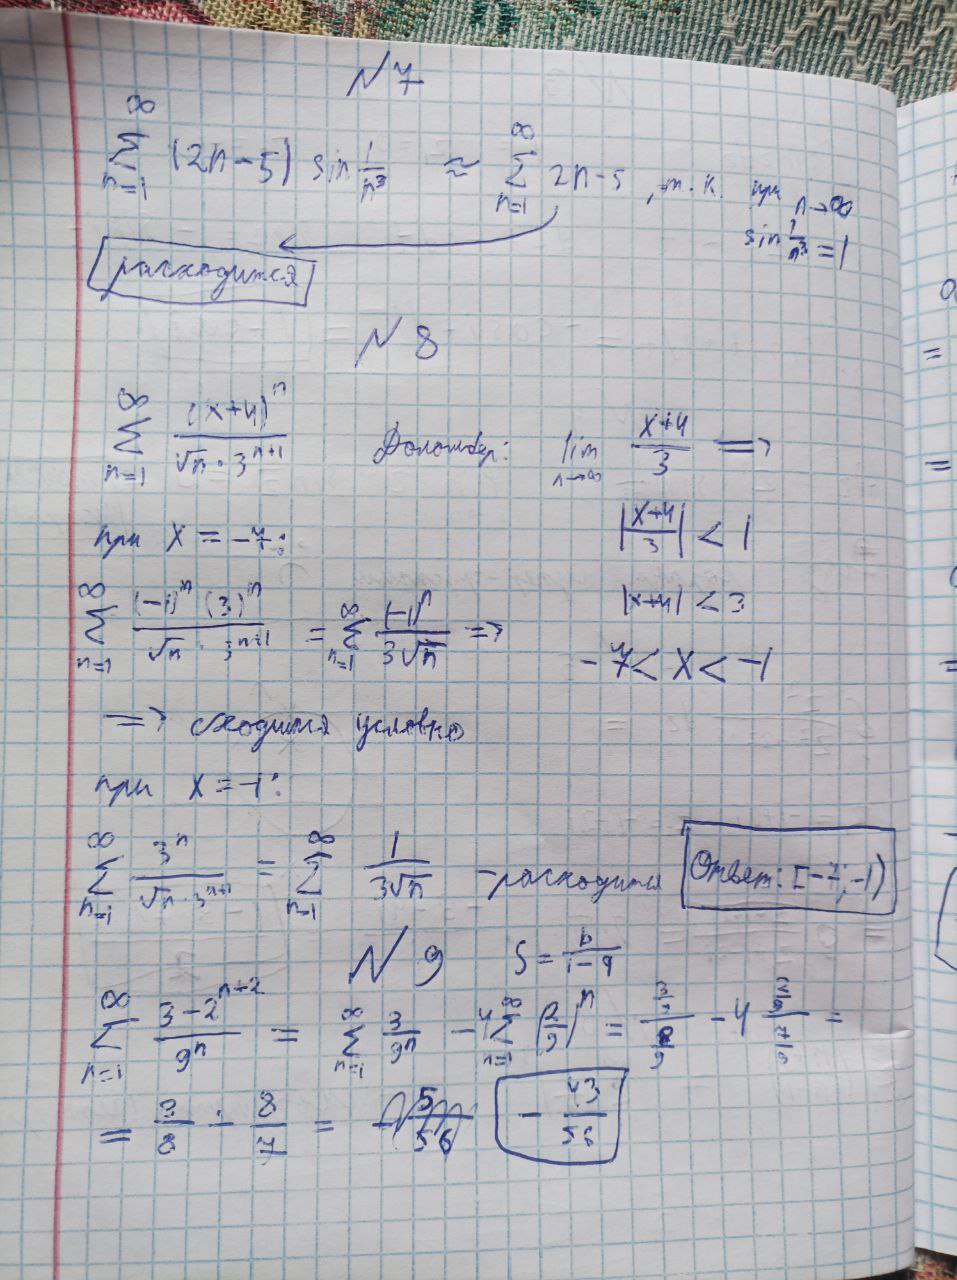 №7
∞ ∑ n=1 (2n-5) sin 1/n³ ≈ ∞ ∑ n=1 2n-5, т.к. при n→∞
sin 1/n³ = 1
расходится
№8
∞ ∑ n=1 (x+4)ⁿ / √n · 3ⁿ⁺¹ lim n→∞ x+4/3 =>
при x = -7: |x+4/3| < 1
|x+4| < 3
∞ ∑ n=1 (-1)ⁿ (3)ⁿ / √n · 3ⁿ⁺¹ = ∞ ∑ n=1 (-1)ⁿ / 3√n =>
-7 < x < -1
=> сходится условно
при x = -1:
∞ ∑ n=1 3ⁿ / √n · 3ⁿ⁺¹ = ∞ ∑ n=1 1 / 3√n - расходится Ответ: [-7; -1)
№9 S = b / 1-q
∞ ∑ n=1 3-2ⁿ⁺² / 9ⁿ = ∞ ∑ n=1 3/9ⁿ - 4 ∞ ∑ n=1 (2/9)ⁿ = - 4 =
= 3/8 - 8/7 = - 43/56